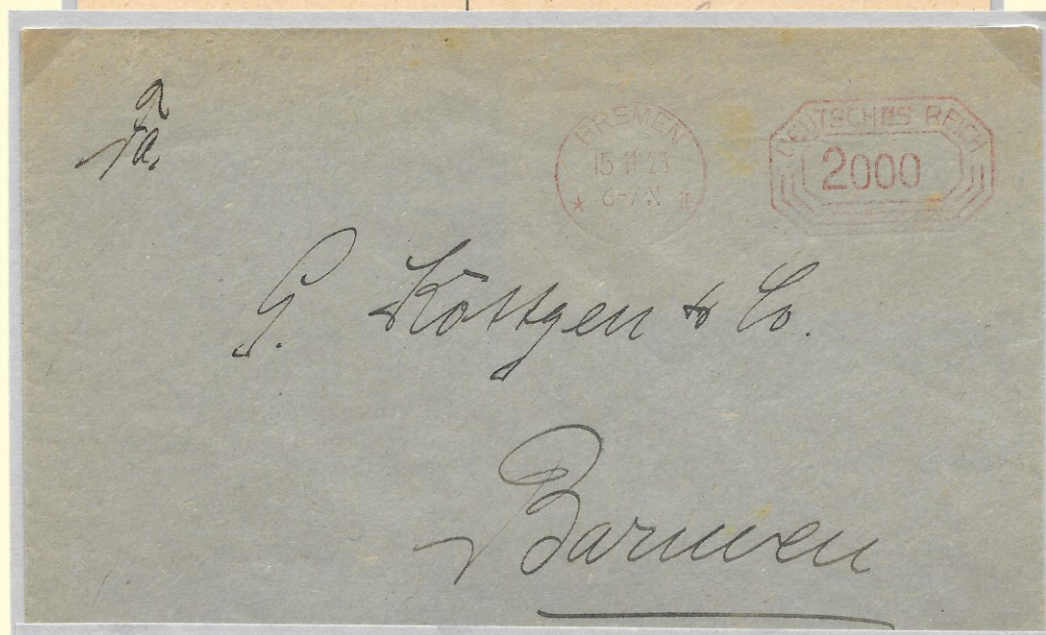 Fa.
BREMEN
15 11 23
6-7 N
* II
DEUTSCHES REICH
2000
G. Köttgen & Co.
Barmen